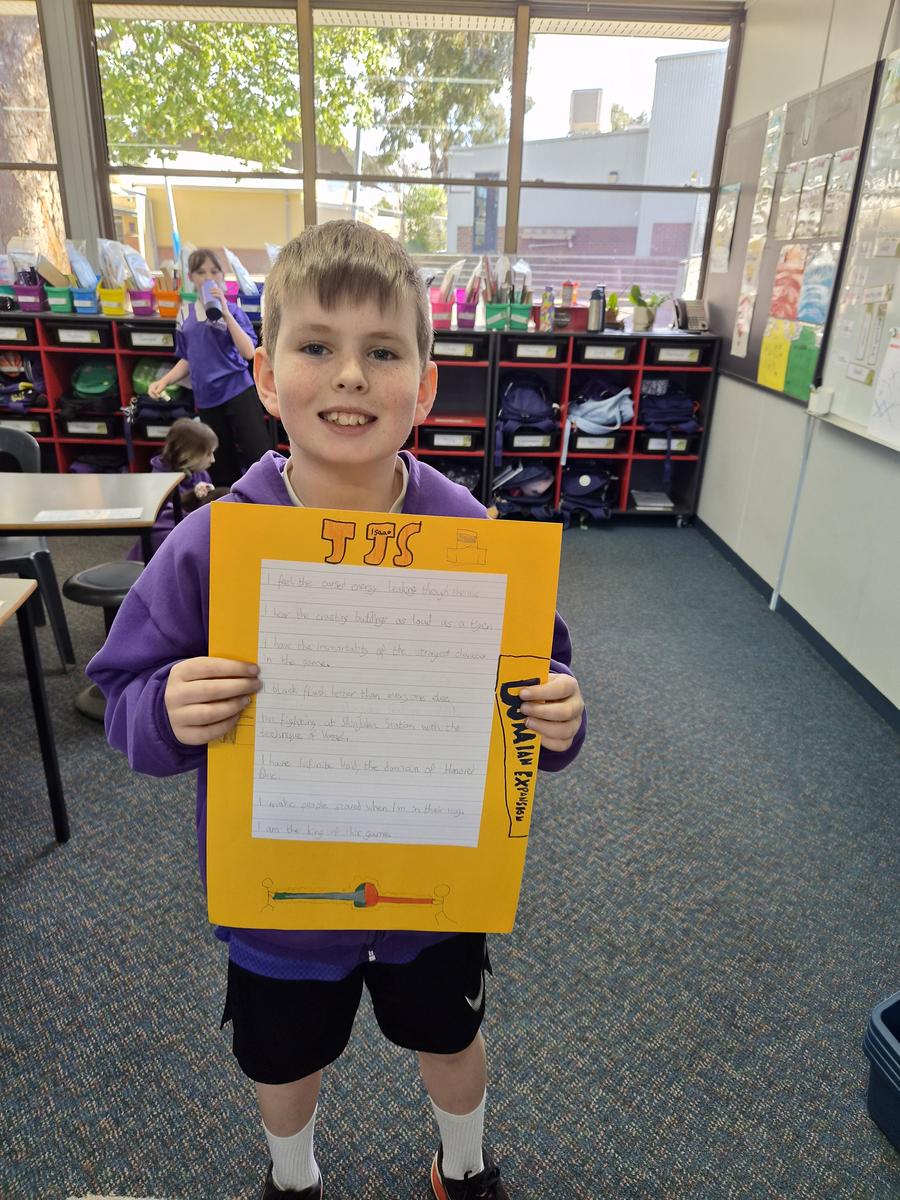 TJS
Isaac
I feel the cursed energy leaking through the
I hear the crashing buildings as loud as a
I have the immortality of the strongest character
in the game.
I black flash better than everyone else.
I'm fighting at Station with the
technique of
I have Infinite Void, the domain of Honored
One.
I make people scared when I'm in their way.
I am the king of this game.
Domaian Expansion